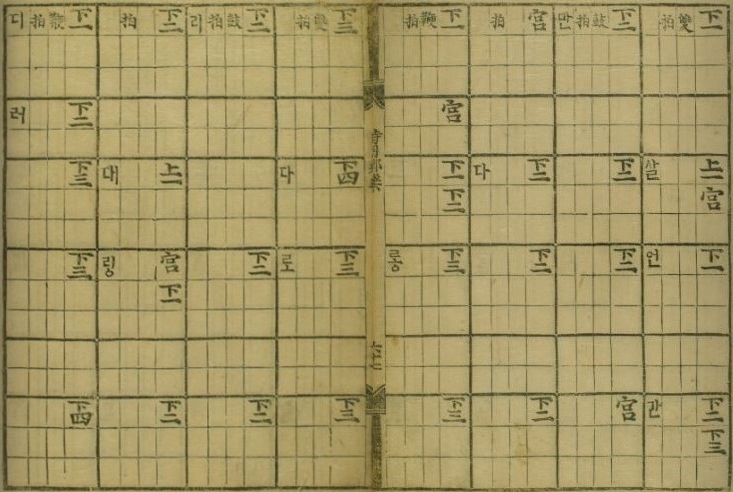 下一 雙 拍
上一 살
宮
下一 언
下二 간
下三
下二 鼓 拍 만
下二
下二
宮
宮 拍
下二 다
下二
下二
下一 鞭 拍
宮
下一
下二
下三 롱
下三
下三 雙 拍
下四 다
下三 로
下三
下二 鼓 拍 리
下二
下二
下二 拍
上一 대
宮 링
下一
下三
下二 鞭 拍 디
下二 러
下三
下三
下四